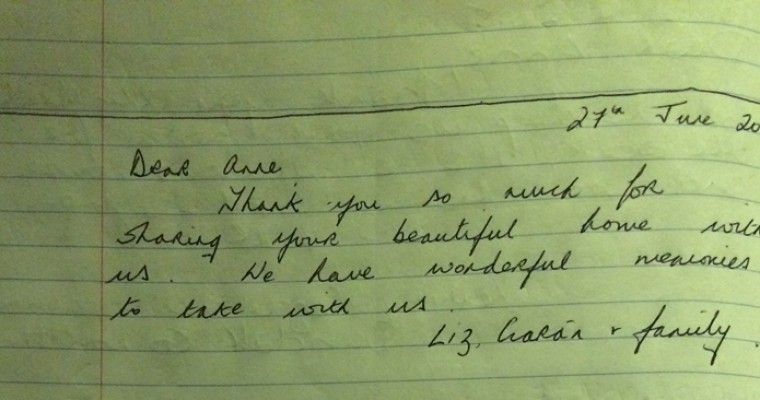 27th June 20
Dear Anne,
Thank you so much for
sharing your beautiful home with
us. We have wonderful memories
to take with us.
Liz, Ciarán + family.